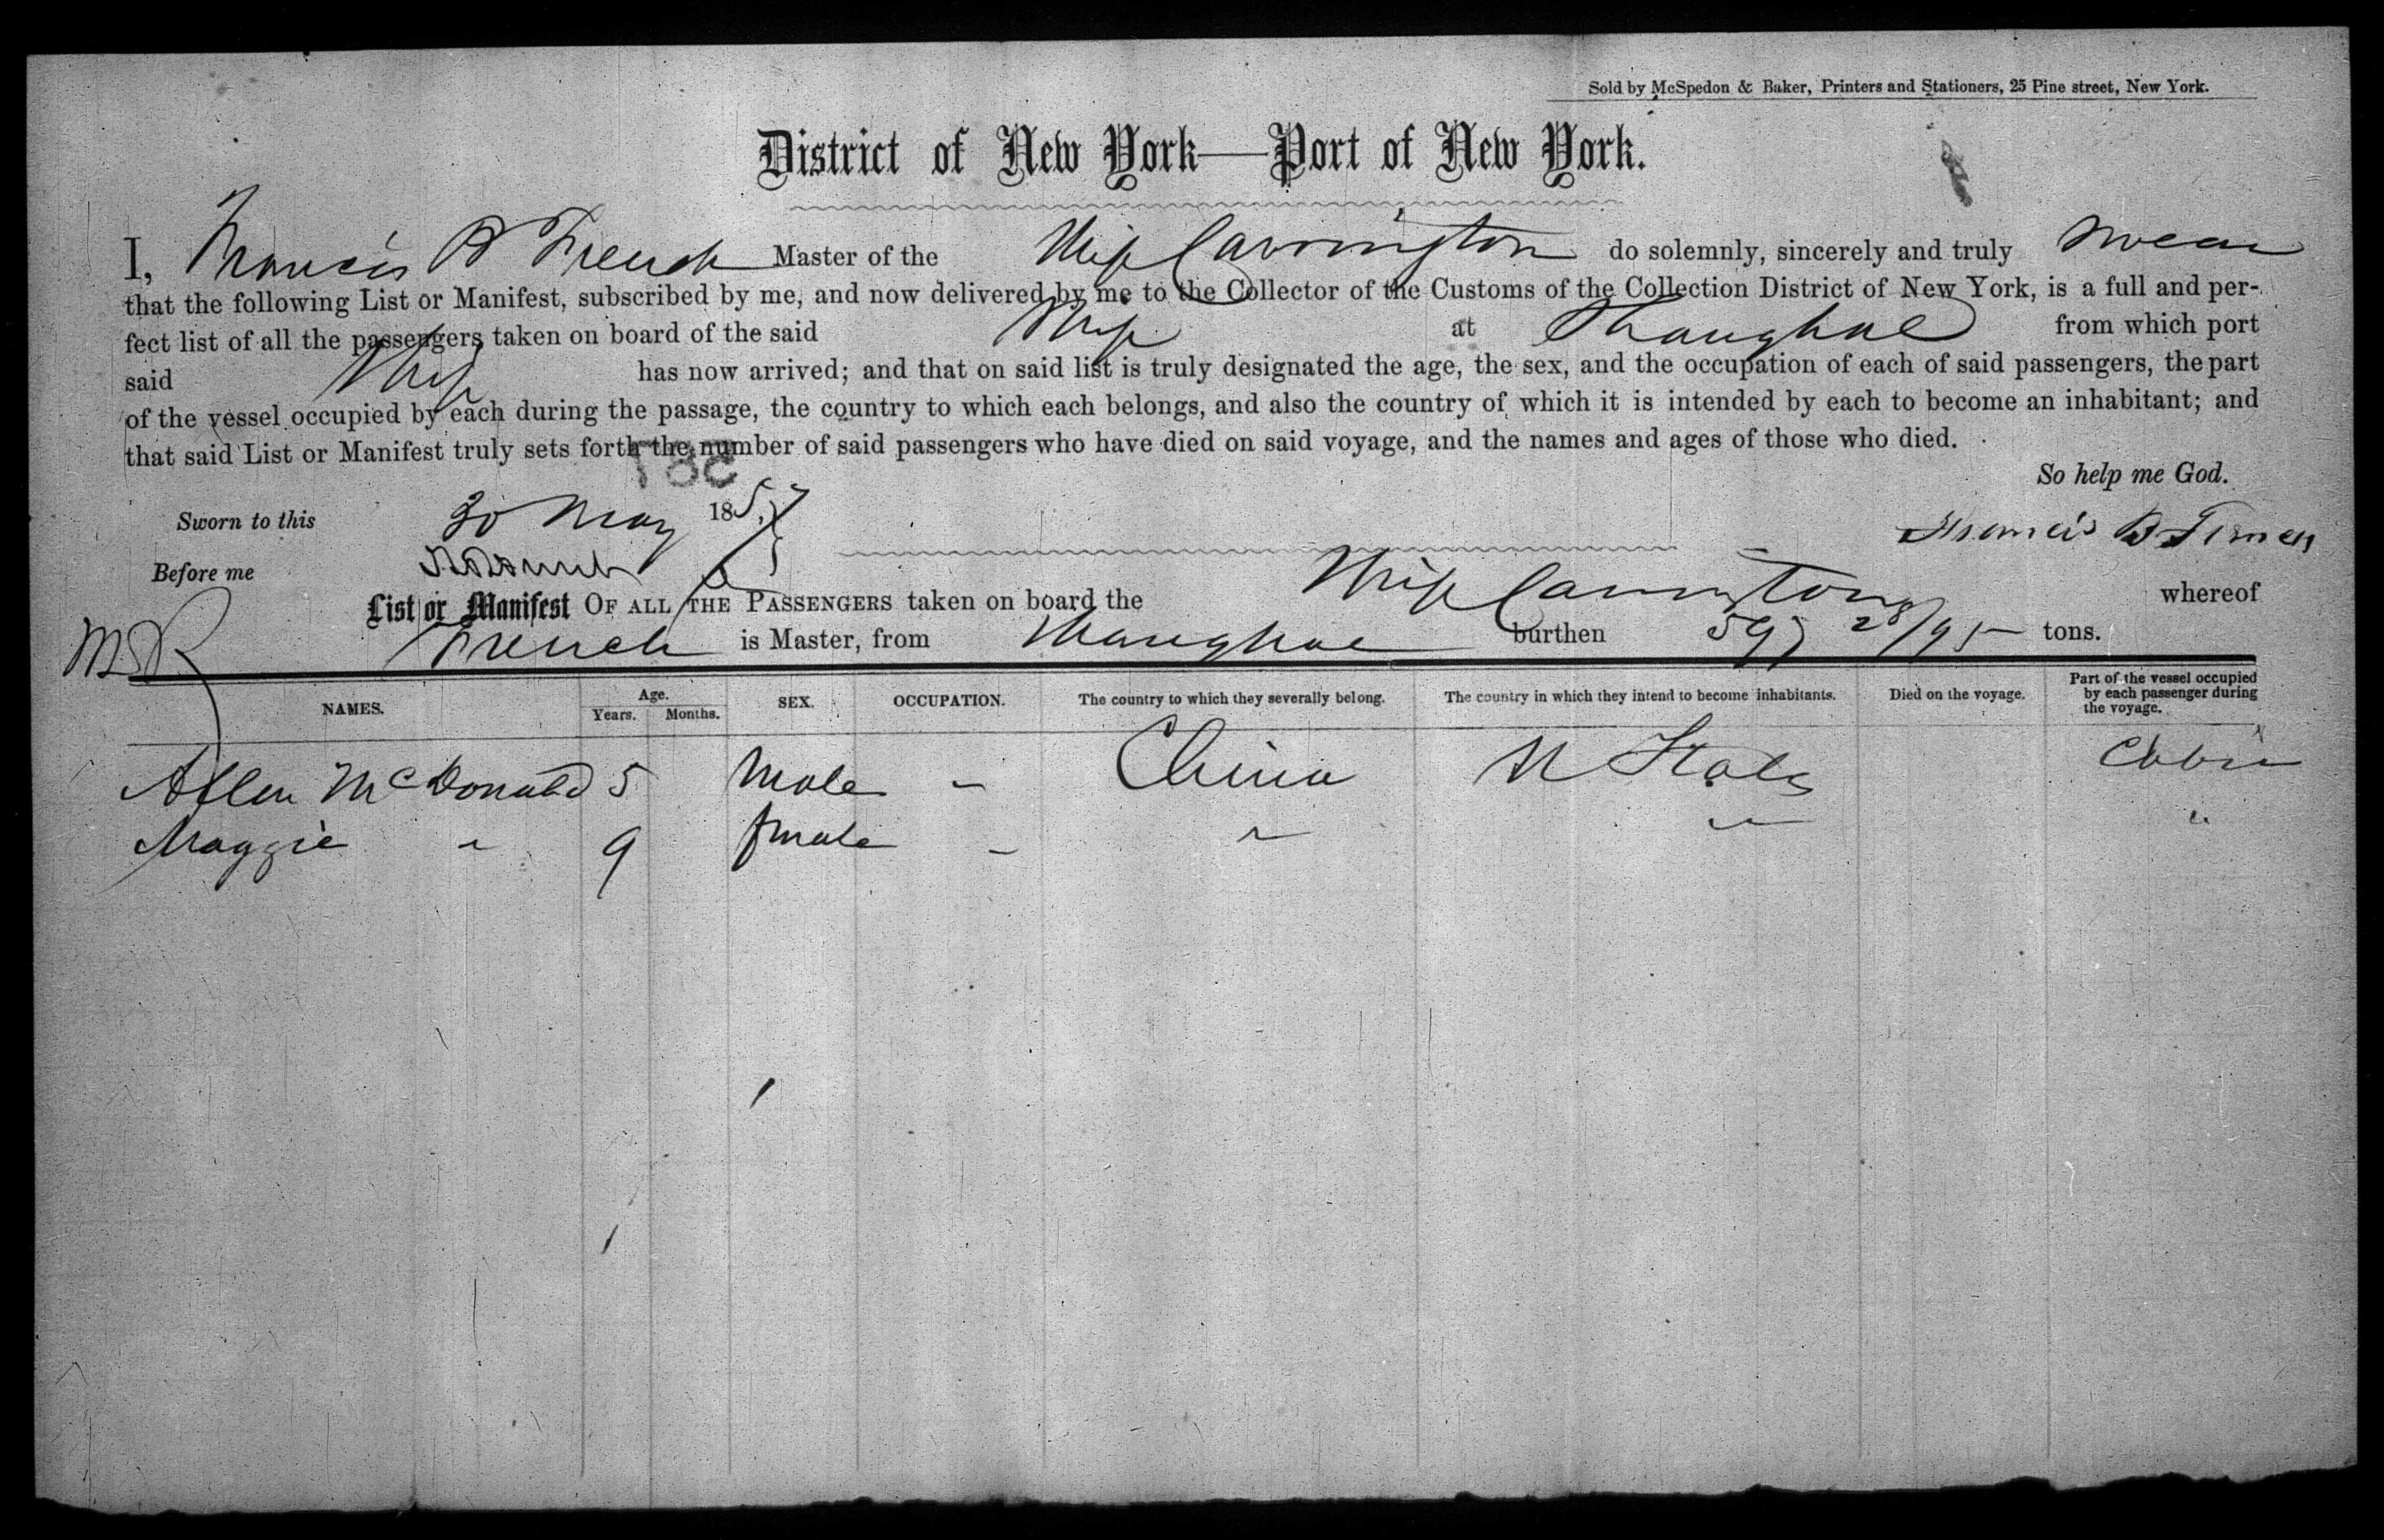 Sold by McSpedon & Baker, Printers and Stationers, 25 Pine street, New York.
District of New York—Port of New York.
I, Francis B French Master of the Ship Carrington do solemnly, sincerely and truly swear
that the following List or Manifest, subscribed by me, and now delivered by me to the Collector of the Customs of the Collection District of New York, is a full and per-
fect list of all the passengers taken on board of the said Ship at Shanghae from which port
said Ship has now arrived; and that on said list is truly designated the age, the sex, and the occupation of each of said passengers, the part
of the vessel occupied by each during the passage, the country to which each belongs, and also the country of which it is intended by each to become an inhabitant; and
that said List or Manifest truly sets forth the number of said passengers who have died on said voyage, and the names and ages of those who died.
So help me God.
Sworn to this 30 May 1857
Francis B French
Before me
List or Manifest OF ALL THE PASSENGERS taken on board the Ship Carrington whereof
French is Master, from Shanghae burthen 597 28/95 tons.
NAMES. Age. Years. Months. SEX. OCCUPATION. The country to which they severally belong. The country in which they intend to become inhabitants. Died on the voyage. Part of the vessel occupied by each passenger during the voyage.
Allen McDonald 5 Male - China U States Cabin
Maggie " 9 female - " " "